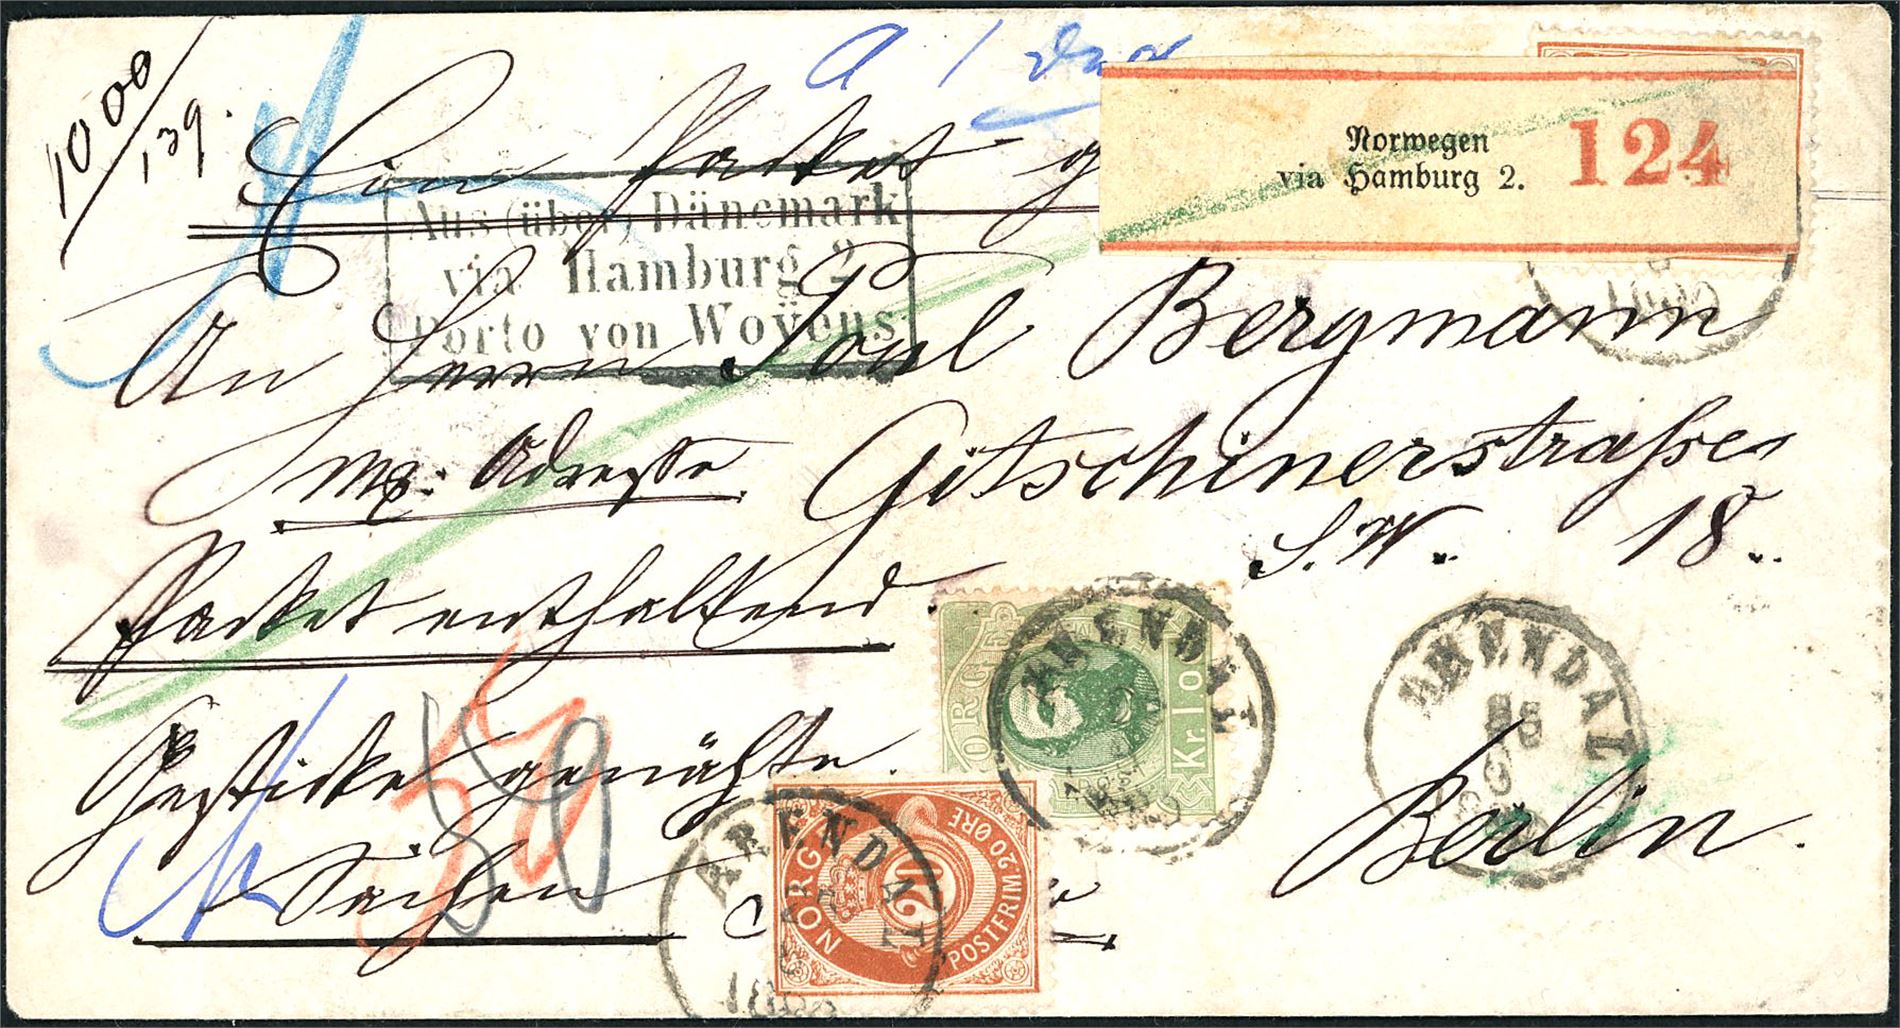 1000
139.
a 1
Norwegen
via Hamburg 2.
124
Ein Packet
Aus (über) Dänemark
via Hamburg 2
Porto von Woyens
An Herrn Poul Bergmann
Adresse Gitschinerstrasse
S.W. 18.
Packet enthaltend
Gestickte genähte
Sachen
Berlin.
50
NORGE
Kr. 1,0
ARENDAL
NORGE
20
POSTFRIM. 20 ØRE
ARENDAL
ARENDAL